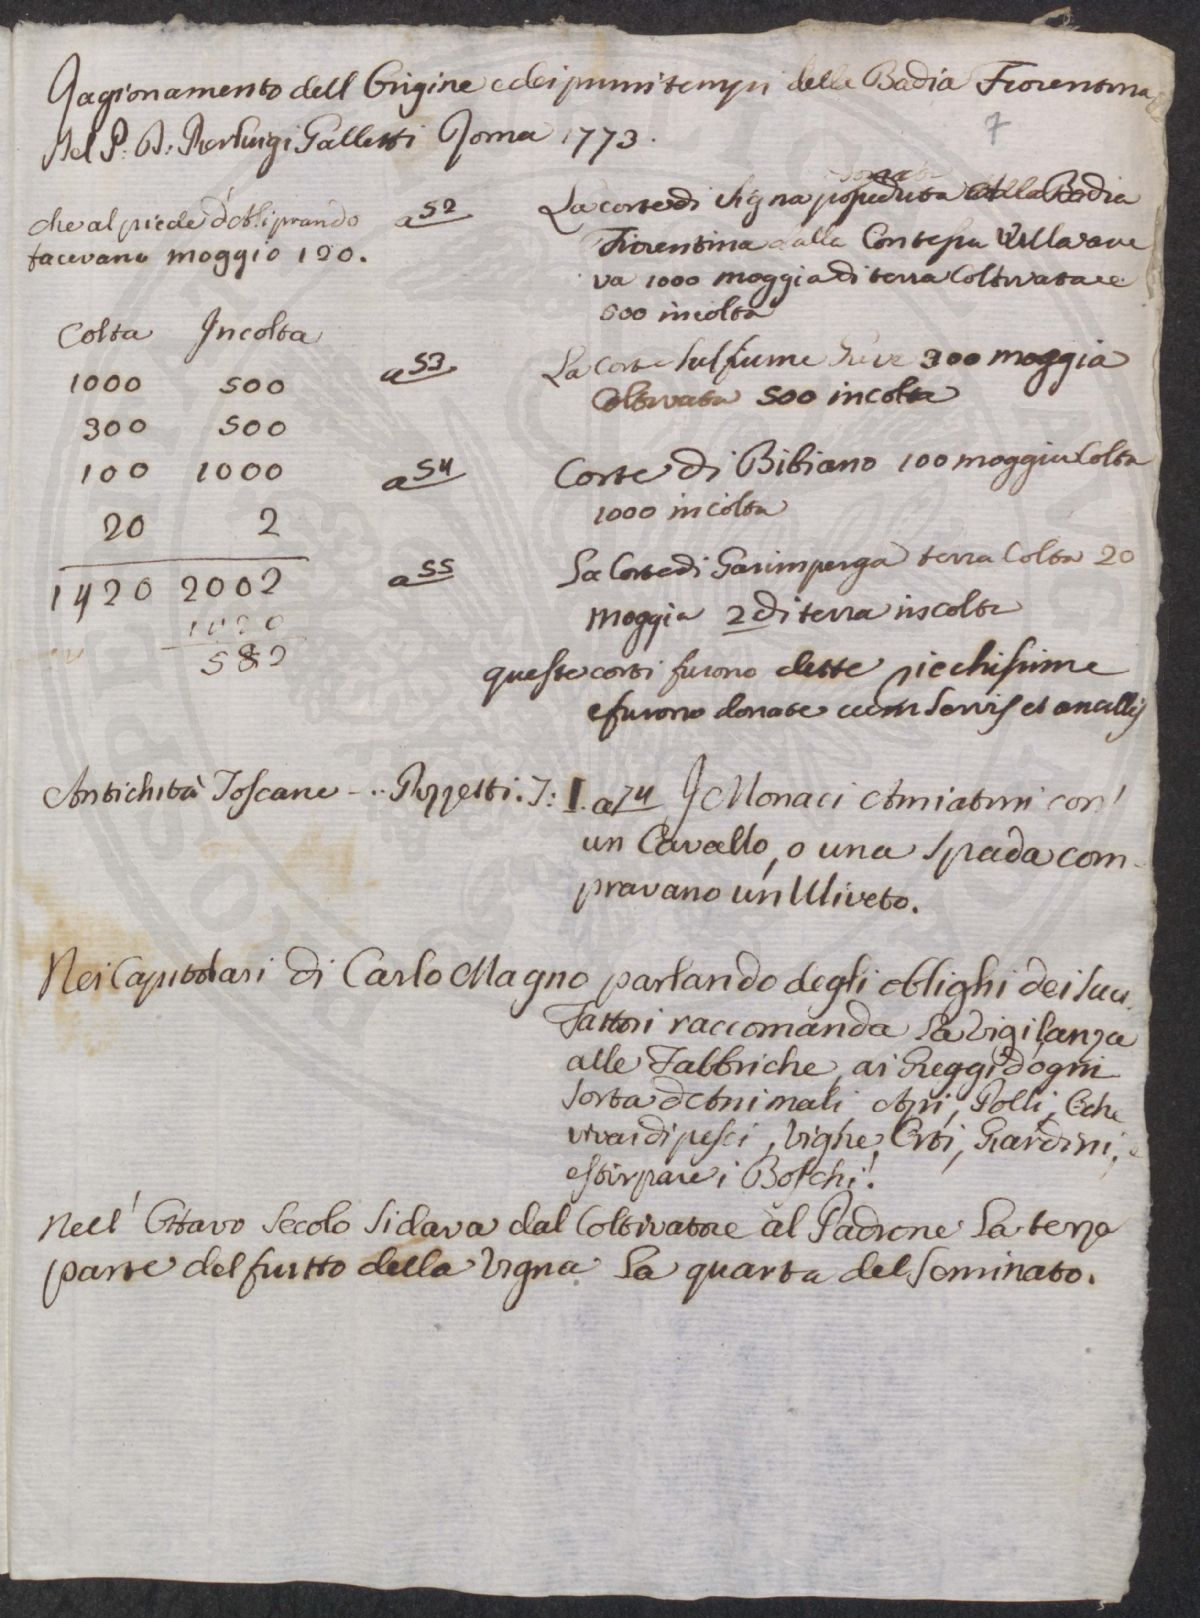 Ragionamento dell Origine e dei primi tempi della Badia Fiorentina
del P. D. Pierluigi Galletti Roma 1773.
7
che al piede d'Aliprando
facevano moggio 120.
a 52
La corte di Signa posseduta dalla Badia
donata
Fiorentina dalla Contessa Willa ave
va 1000 moggia di terra Coltivata e
500 incolta
Colta Incolta
1000 500
300 500
100 1000
20 2
1420 2002
1420
582
a 53
La corte sul fiume Greve 300 moggia
Coltivata 500 incolta
a 54
Corte di Bibiano 100 moggia Colta
1000 incolta
a 55
La Corte di Garimperga terra Colta 20
moggia 2 di terra incolta
queste corti furono dette ricchissime
e furono donate cum servis et ancillis
Antichità Toscane - .. Pizzetti. T: I. a 74 I Monaci Amiatini con'
un Cavallo, o una Spada com-
pravano un'Uliveto.
Nei Capitolari di Carlo Magno parlando degli oblighi dei suoi
Fattori raccomanda la vigilanza
alle Fabbriche, ai Greggi d'ogni
sorta d'Animali, Api, Polli, Oche
vivai di pesci, Vighe, Orti, Giardini, e
estirpare i Boschi.
Nell' Ottavo Secolo si dava dal Coltivatore al Padrone la terza
parte del frutto della Vigna la quarta del Seminato.